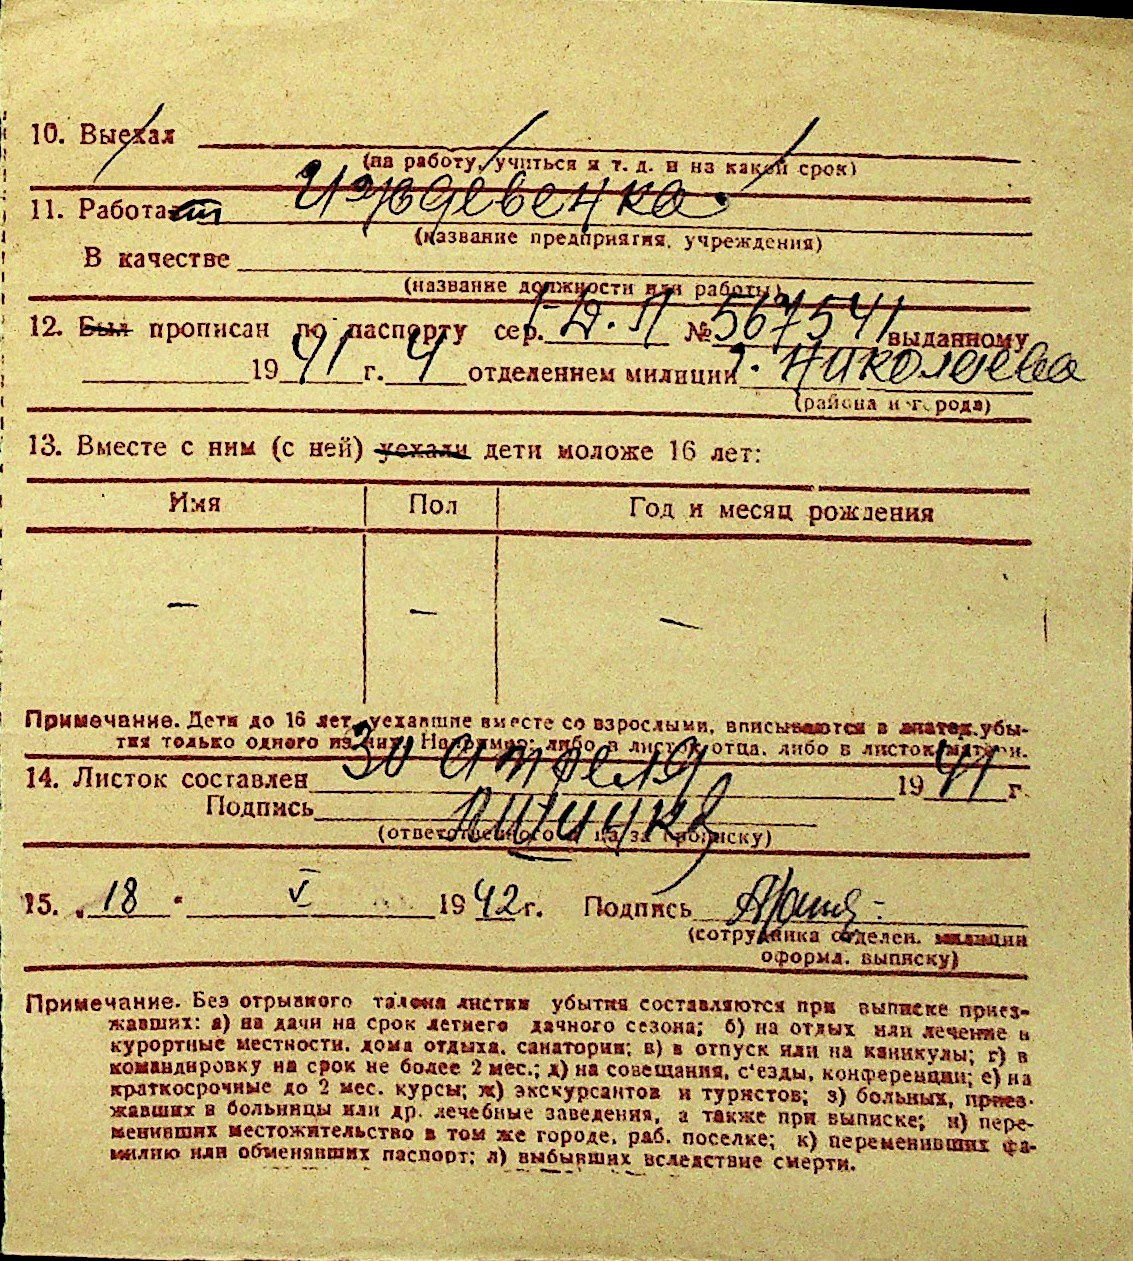 10. Выехал
(на работу, учиться и т. д. и на какой срок)
11. Работает Иждевенка.
(название предприятия, учреждения)
В качестве
(название должности или работы)
12. Был прописан по паспорту сер. № 567541 выданному
19 41 г. 4 отделением милиции г. Николаева
(района и города)
13. Вместе с ним (с ней) уехали дети моложе 16 лет:
Имя Пол Год и месяц рождения
— — —
Примечание. Дети до 16 лет, уехавшие вместе со взрослыми, вписываются в листок убы-
тия только одного из них. Например: либо в листок отца, либо в листок матери.
14. Листок составлен 30 апреля 19 41 г.
Подпись
(ответственного лица за прописку)
15. „18" V 19 42 г. Подпись
(сотрудника отделен. милиции
оформл. выписку)
Примечание. Без отрывного талона листки убытия составляются при выписке приез-
жавших: а) на дачи на срок летнего дачного сезона; б) на отдых или лечение в
курортные местности, дома отдыха, санатории; в) в отпуск или на каникулы; г) в
командировку на срок не более 2 мес.; д) на совещания, с'езды, конференции; е) на
краткосрочные до 2 мес. курсы; ж) экскурсантов и туристов; з) больных, приез-
жавших в больницы или др. лечебные заведения, а также при выписке; и) пере-
менивших местожительство в том же городе, раб. поселке; к) переменивших фа-
милию или обменявших паспорт; л) выбывших вследствие смерти.